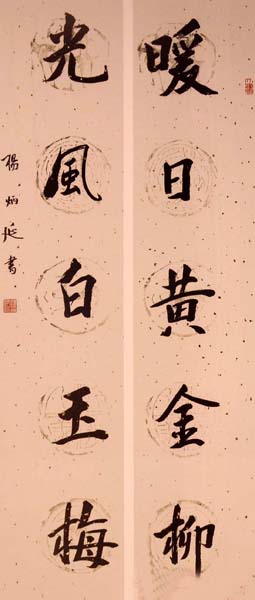 暖日黄金柳
光風白玉梅
楊炳延書